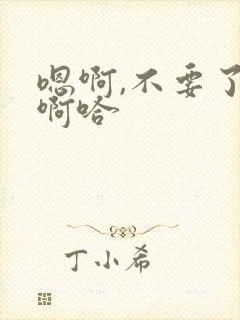 嗯啊,不要了
啊哈
丁小希